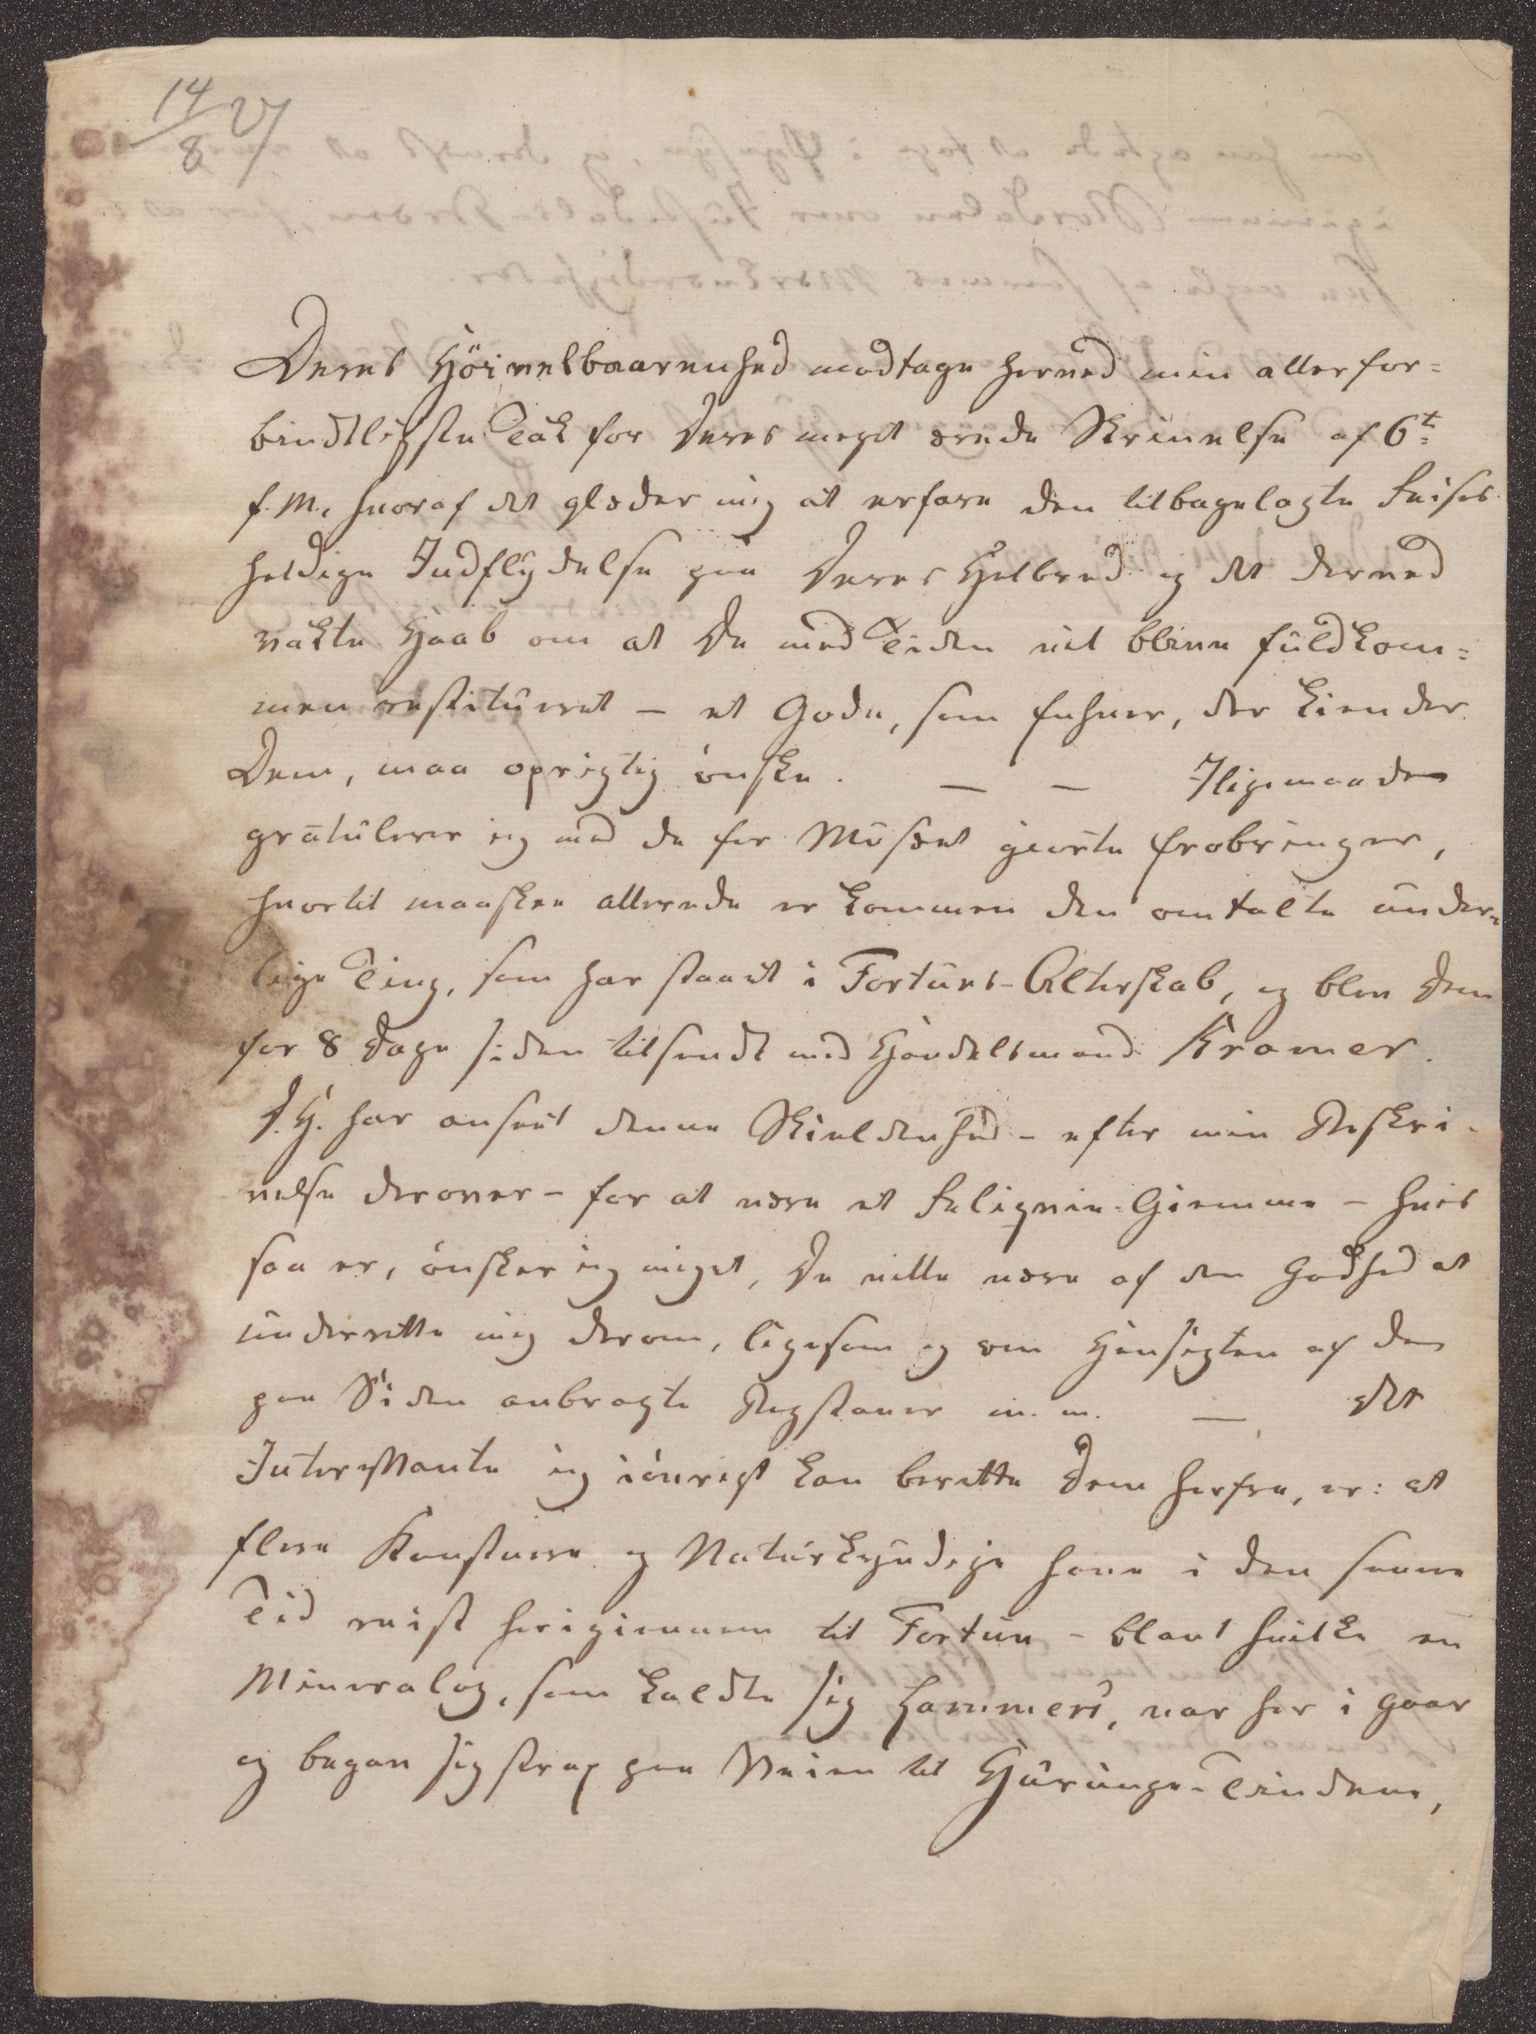 14/8 27
Deres Höivelbaarenhed modtage herved min allerfor=
bindtligste Tak for Deres meget ærede Skrivelse af 6t
f. M., hvoraf det glæder mig at erfare den tilbagelagte Reises
heldige Indflydelse paa Deres Helbred og det derved
vakte Haab om at De med Tiden vil blive fuldkom=
men restitueret – et Gode, som Enhver, der kiender
Dem, maa oprigtig önske. — — Iligemaade
gratulerer jeg med de for Museet giorte Erobringer,
hvortil maaskee allerede er kommen den omtalte under=
lige Ting, som har staaet i Fortuns-Alterskab, og blev Dem
for 8 Dage siden tilsendt med Handelsmand Kramer.
D. H. har anseet denne Skieldenhed – efter min Beskri-
velse derover – for at være et Reliqvie-Giemme – hvis
saa er, önsker jeg meget, De ville være af den Godhed at
underrette mig derom, ligesom og om Hensigten af de
paa Siden anbragte Bogstaver m. m. — Det
Interessante jeg iövrigt kan berette Dem herfra, er: at
flere Konstnere og Naturkyndige have i den senere
Tid reist herigiennem til Fortun – blant hvilke en
Mineralog, som kaldte sig Hammer, var her i Gaar
og begav sig strax paa Veien til Hurunge-Tindene,